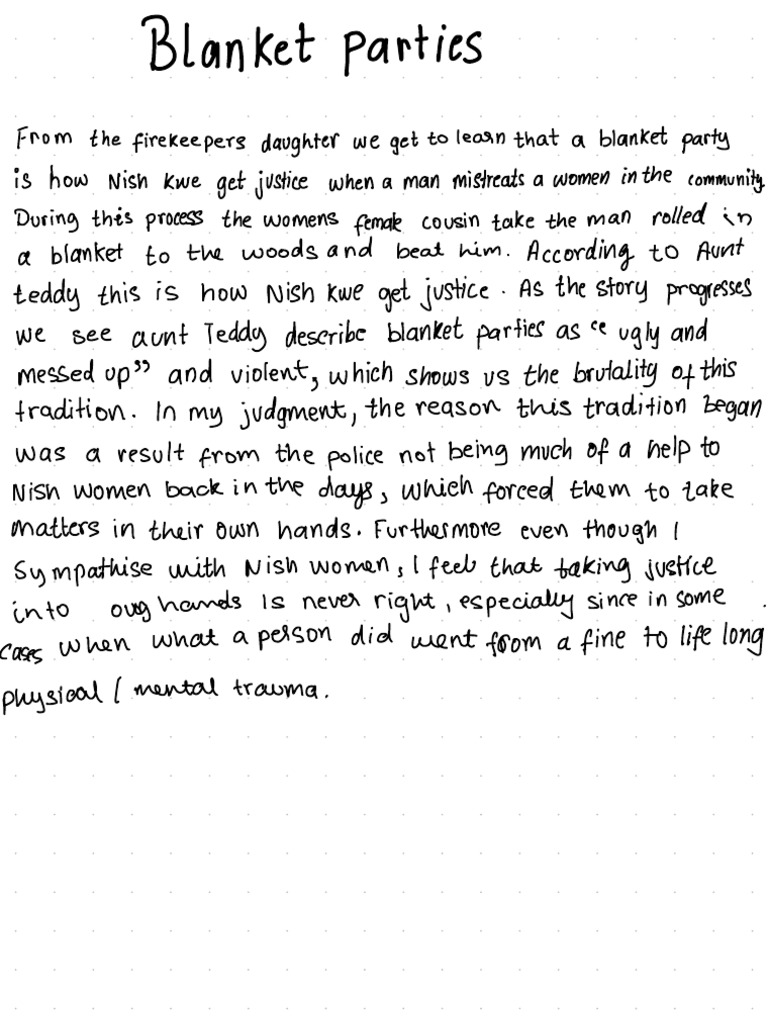 Blanket parties
From the firekeepers daughter we get to learn that a blanket party
is how Nish Kwe get justice when a man mistreats a women in the community.
During this process the womens female cousin take the man rolled in
a blanket to the woods and beat him. According to Aunt
teddy this is how Nish Kwe get justice. As the story progresses
we see aunt Teddy describe blanket parties as “ ugly and
messed up” and violent, which shows us the brutality of this
tradition. In my judgment, the reason this tradition began
was a result from the police not being much of a help to
Nish women back in the days, which forced them to take
matters in their own hands. Furthermore even though I
sympathise with Nish women, I feel that taking justice
into our hands is never right, especially since in some
cases when what a person did went from a fine to life long
physical / mental trauma.